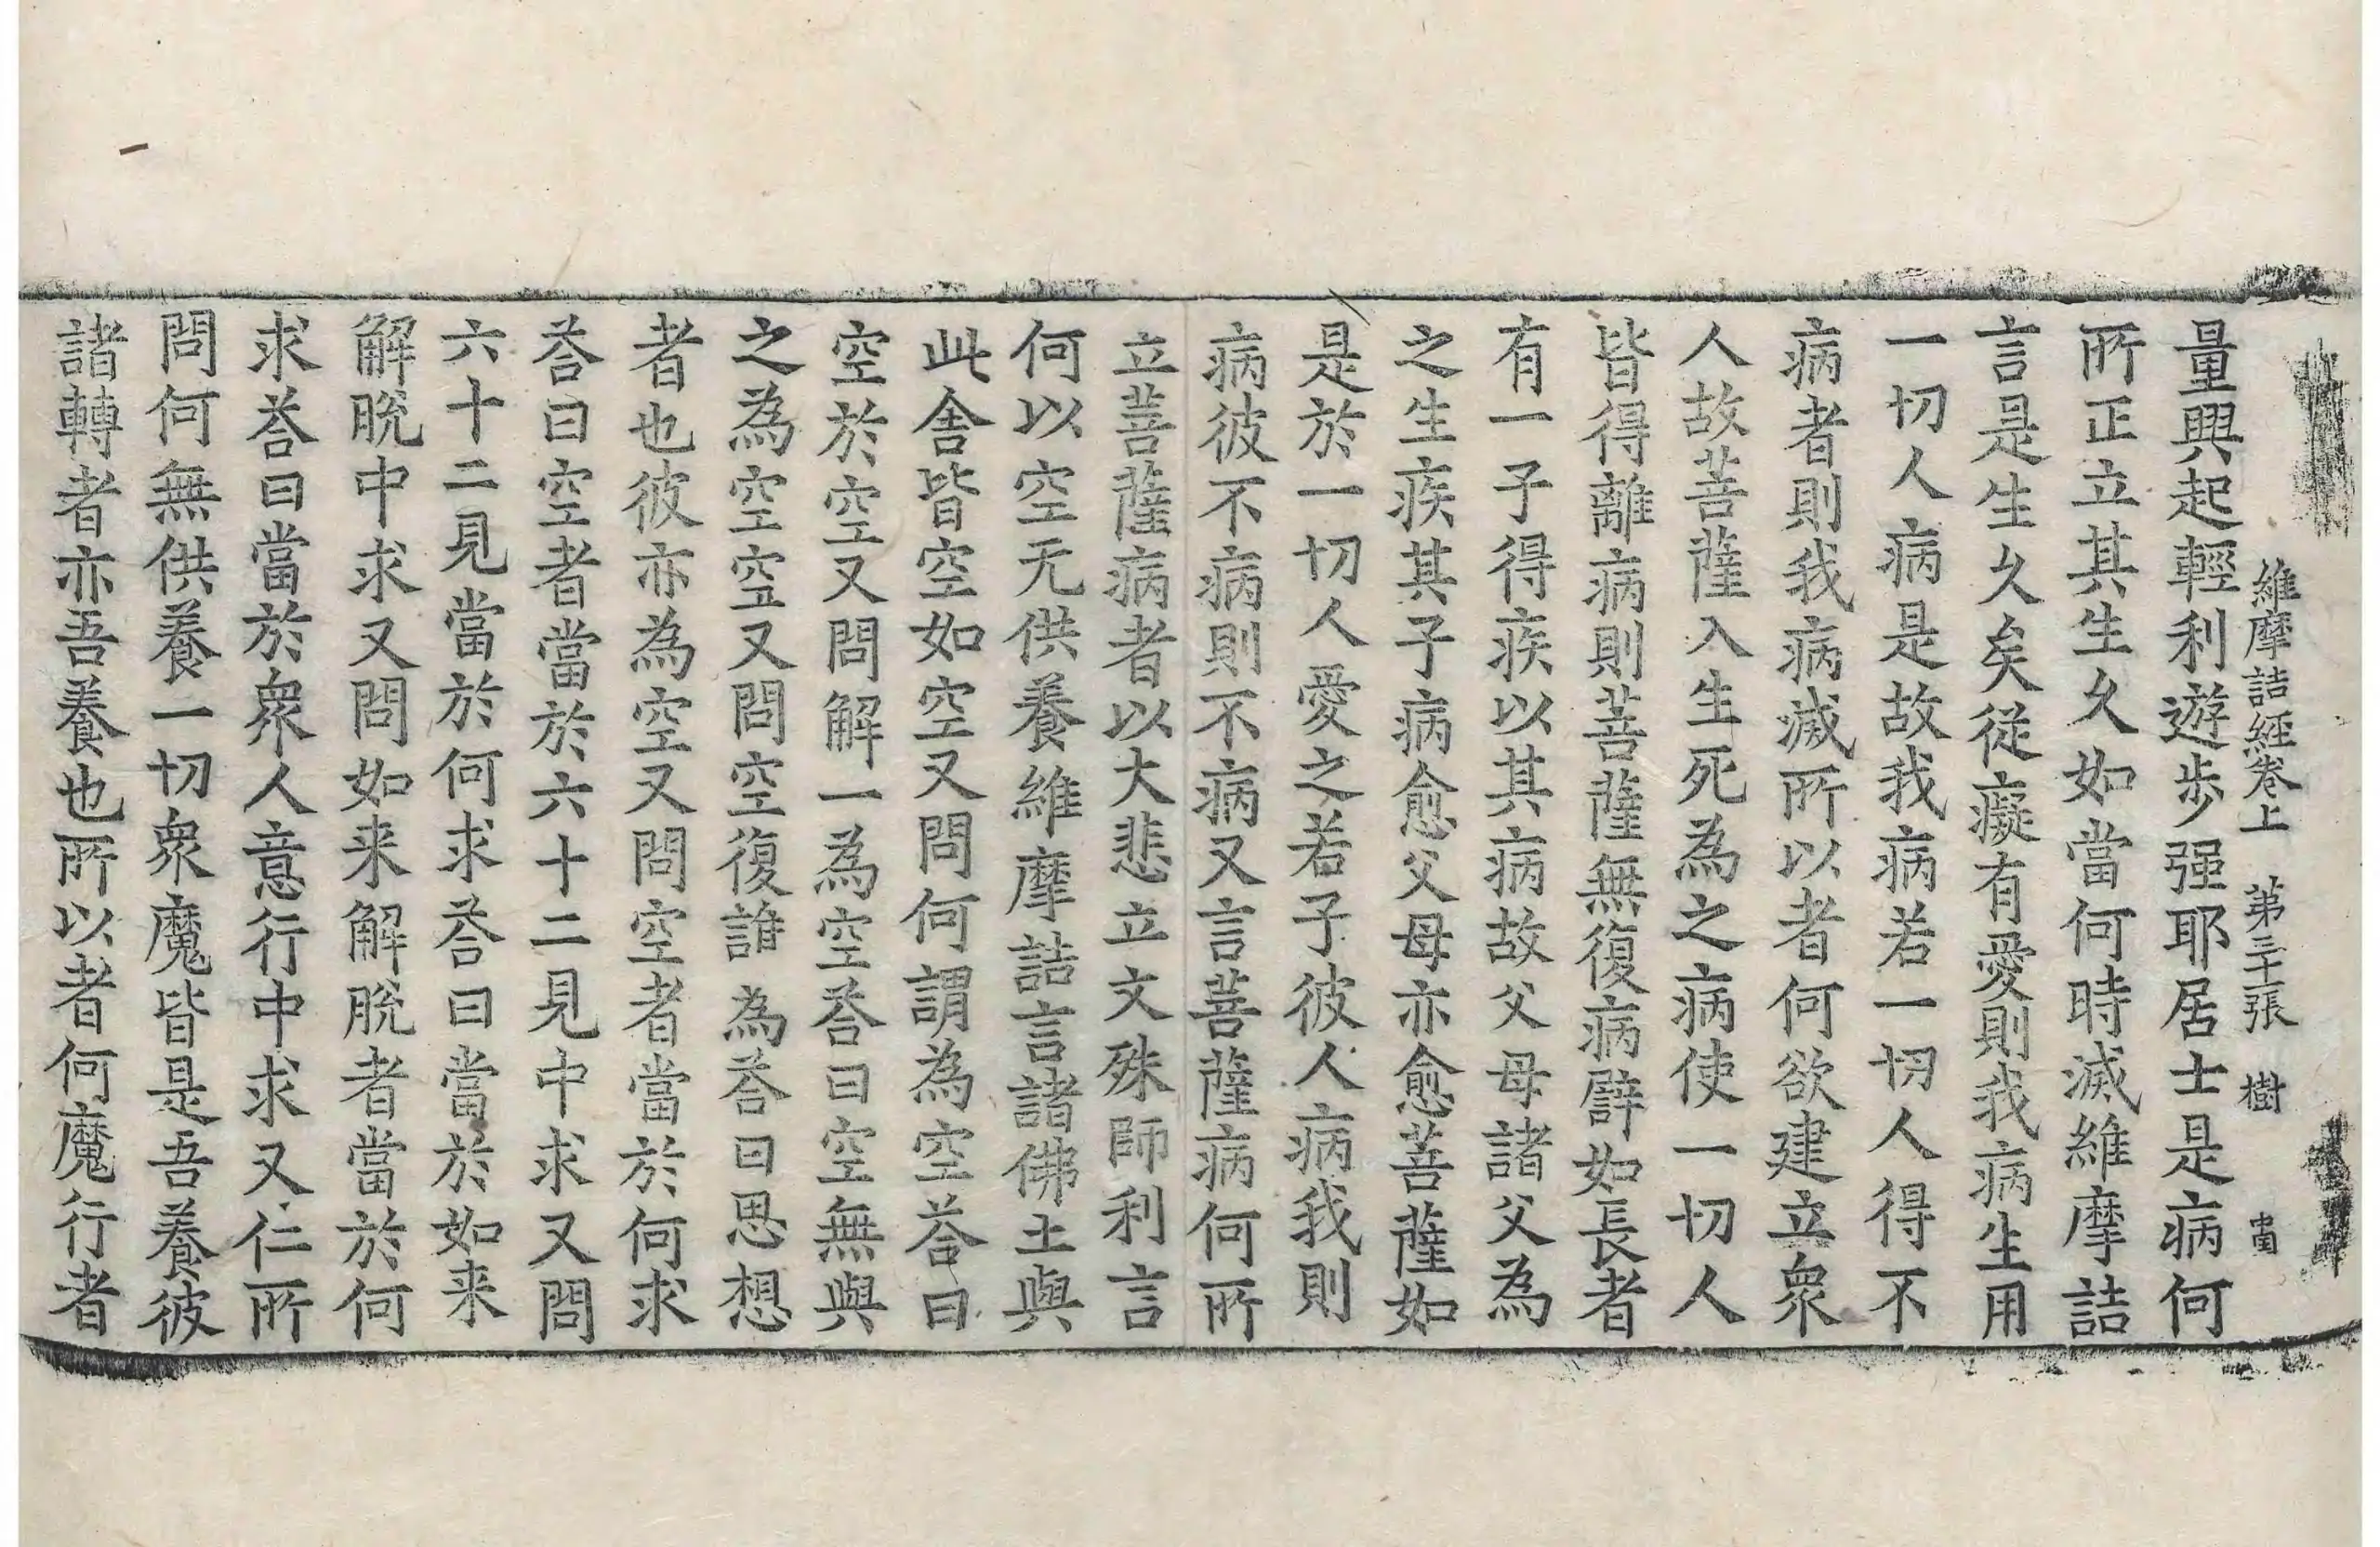 維摩詰経卷上　第三十張　樹
量興起輕利遊步强耶居士是病何
所正立其生久如當何時滅維摩詰
言是生久矣從癡有愛則我病生用
一切人病是故我病若一切人得不
病者則我病滅所以者何欲建立衆
人故菩薩入生死為之病使一切人
皆得離病則菩薩無復病譬如長者
有一子得疾以其病故父母諸父為
之生疾其子病愈父母亦愈菩薩如
是於一切人愛之若子彼人病我則
病彼不病則不病又言菩薩病何所
立菩薩病者以大悲立文殊師利言
何以空无供養維摩詰言諸佛土與
此舍皆空如空又問何謂為空荅曰
空於空又問解一為空荅曰空無與
之為空空又問空復誰為荅曰思想
者也彼亦為空又問空者當於何求
荅曰空者當於六十二見中求又問
六十二見當於何求荅曰當於如来
解脫中求又問如来解脫者當於何
求荅曰當於衆人意行中求又仁所
問何無供養一切衆魔皆是吾養彼
諸轉者亦吾養也所以者何魔行者